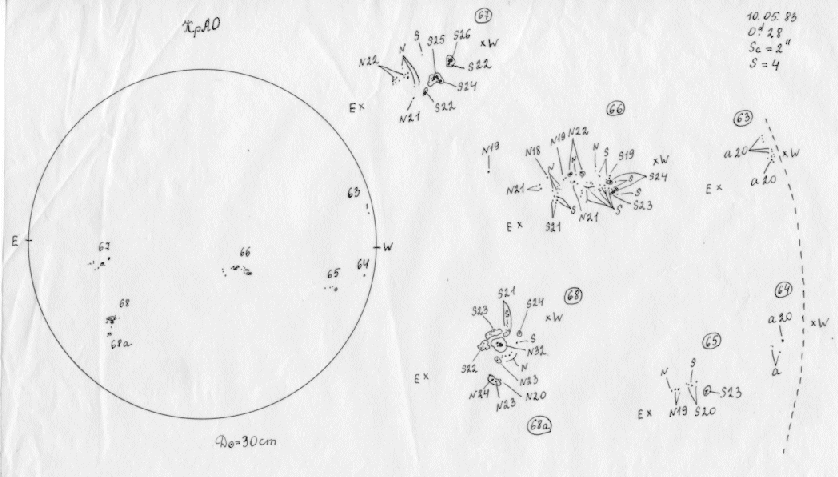 КрАО
E
W
63
64
65
66
67
68
68a
D⊙=30cm
10.05.83
Sc = 2"
S = 4
67
N22
N
S
S25
S26
×W
S22
S24
S22
N21
E×
66
N19
N18
N19
N22
N
N
S
S19
×W
S24
S
S
S23
S
N21
S
S21
N21
E×
63
a20
×W
a20
E×
64
a20
×W
a
65
N
S
S23
E×
N19
S20
68
S21
S23
S24
×W
S
N32
S22
N
N23
E×
N24
N23
N20
68a